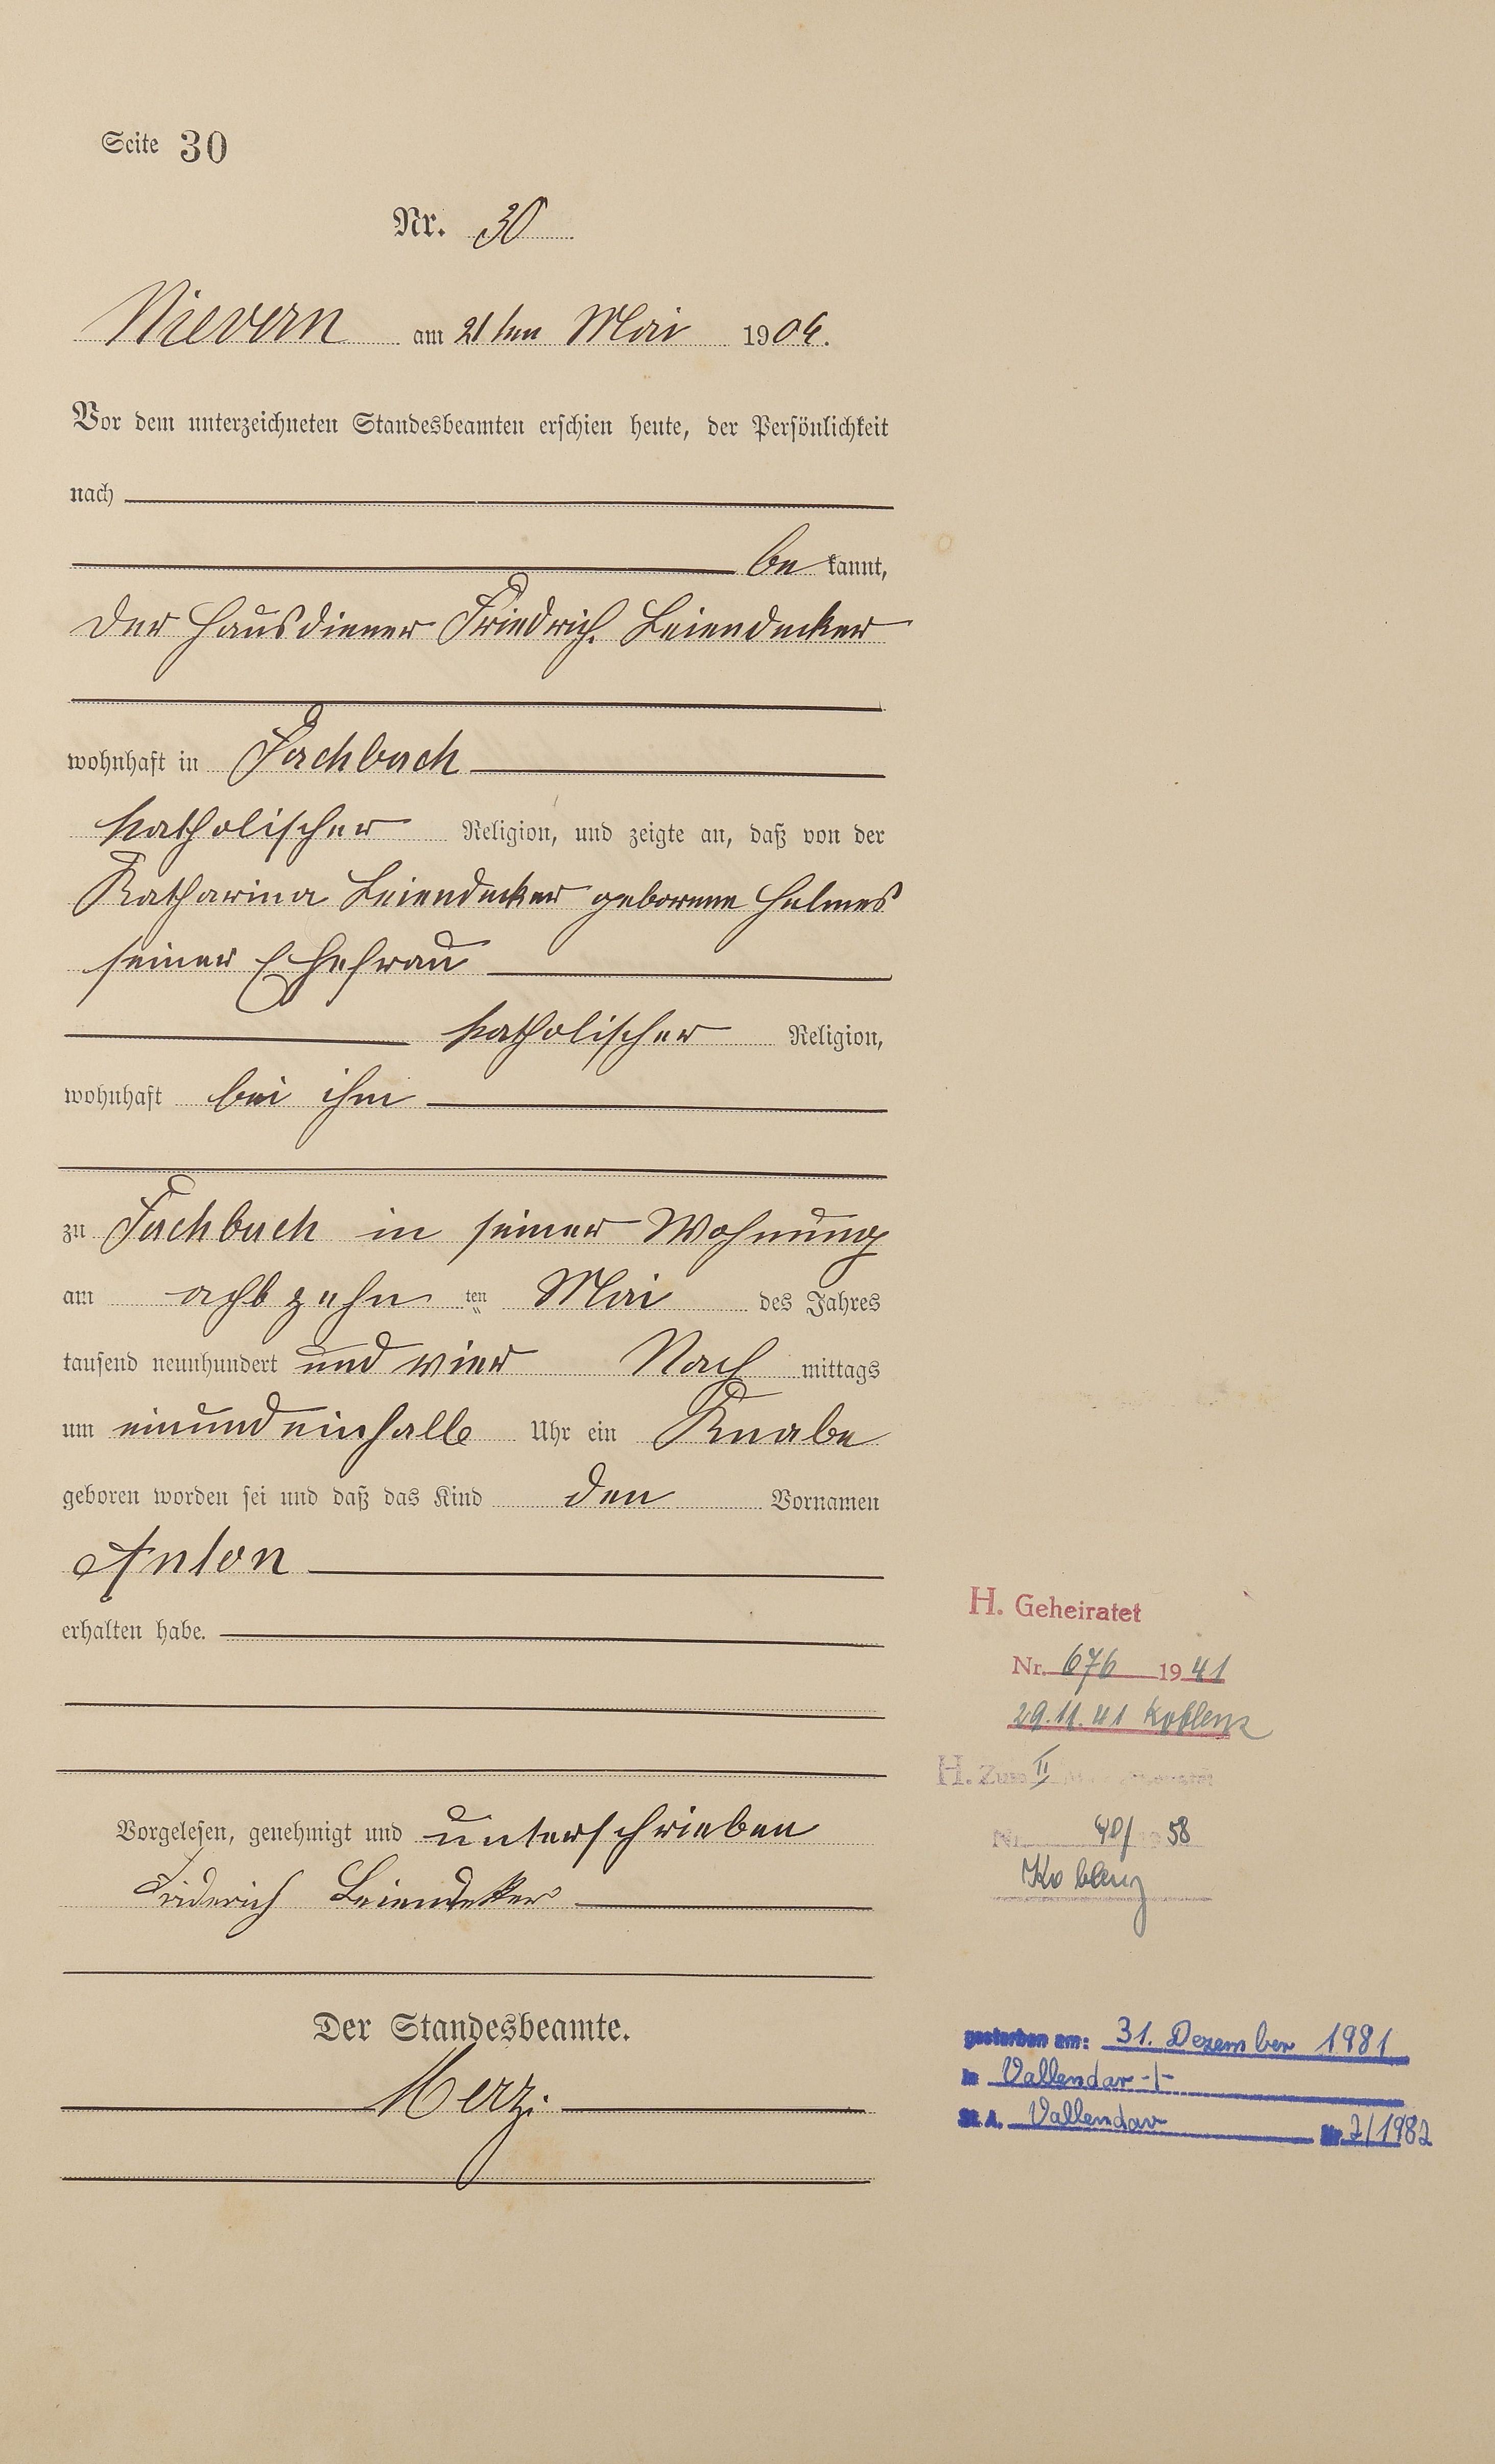 Seite 30
Nr. 30
Nievern am 21ten Mai 1904.
Vor dem unterzeichneten Standesbeamten erschien heute, der Persönlichkeit
nach
be kannt,
der Hausdiener Friedrich Leiendecker
wohnhaft in Fachbach
katholischer Religion, und zeigte an, daß von der
Katharina Leiendecker geborene Helmes
seiner Ehefrau
katholischer Religion,
wohnhaft bei ihm
zu Fachbach in seiner Wohnung
am achtzehn ten Mai des Jahres
tausend neunhundert und vier Nach mittags
um einundeinhalb Uhr ein Knabe
geboren worden sei und daß das Kind den Vornamen
Anton
erhalten habe.
Vorgelesen, genehmigt und unterschrieben
Friderich Leiendecker
Der Standesbeamte.
Merz.
H. Geheiratet
Nr. 676 1941
29.11.41 Koblenz
H. Zum II
Nr. 40/1958
Koblenz
gestorben am: 31. Dezember 1981
in Vallendar -/-
St. A. Vallendar Nr. 2/1982